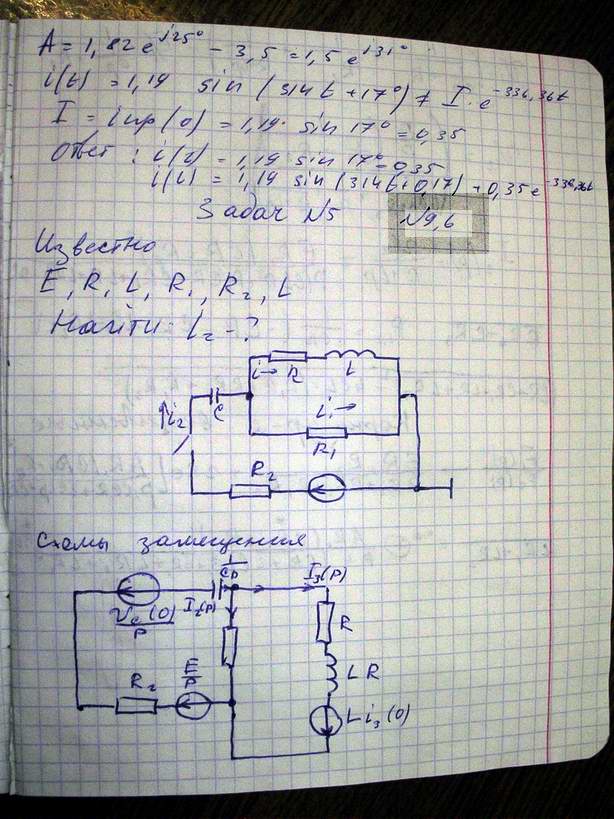 A = 1,82 e^j125° - 3,5 = 1,5 e^j131°
i(t) = 1,19 sin (314t + 17°) + I · e^-336,36t
I = iпр(0) = 1,19 · sin 17° = 0,35
Ответ: i(t) = 1,19 sin 17° = 0,35
i(t) = 1,19 sin (314t + 0,17) + 0,35 e^-336,36t
Задач №5
№9,6
Известно
E, R, L, R1, R2, L
Найти: i2 - ?
i → R L
i2 C i1 →
R1
R2
Схемы замещения
1/Cp I3(p)
Uc(0)/p I2(p) R
R2 E/p L R
L i3(0)